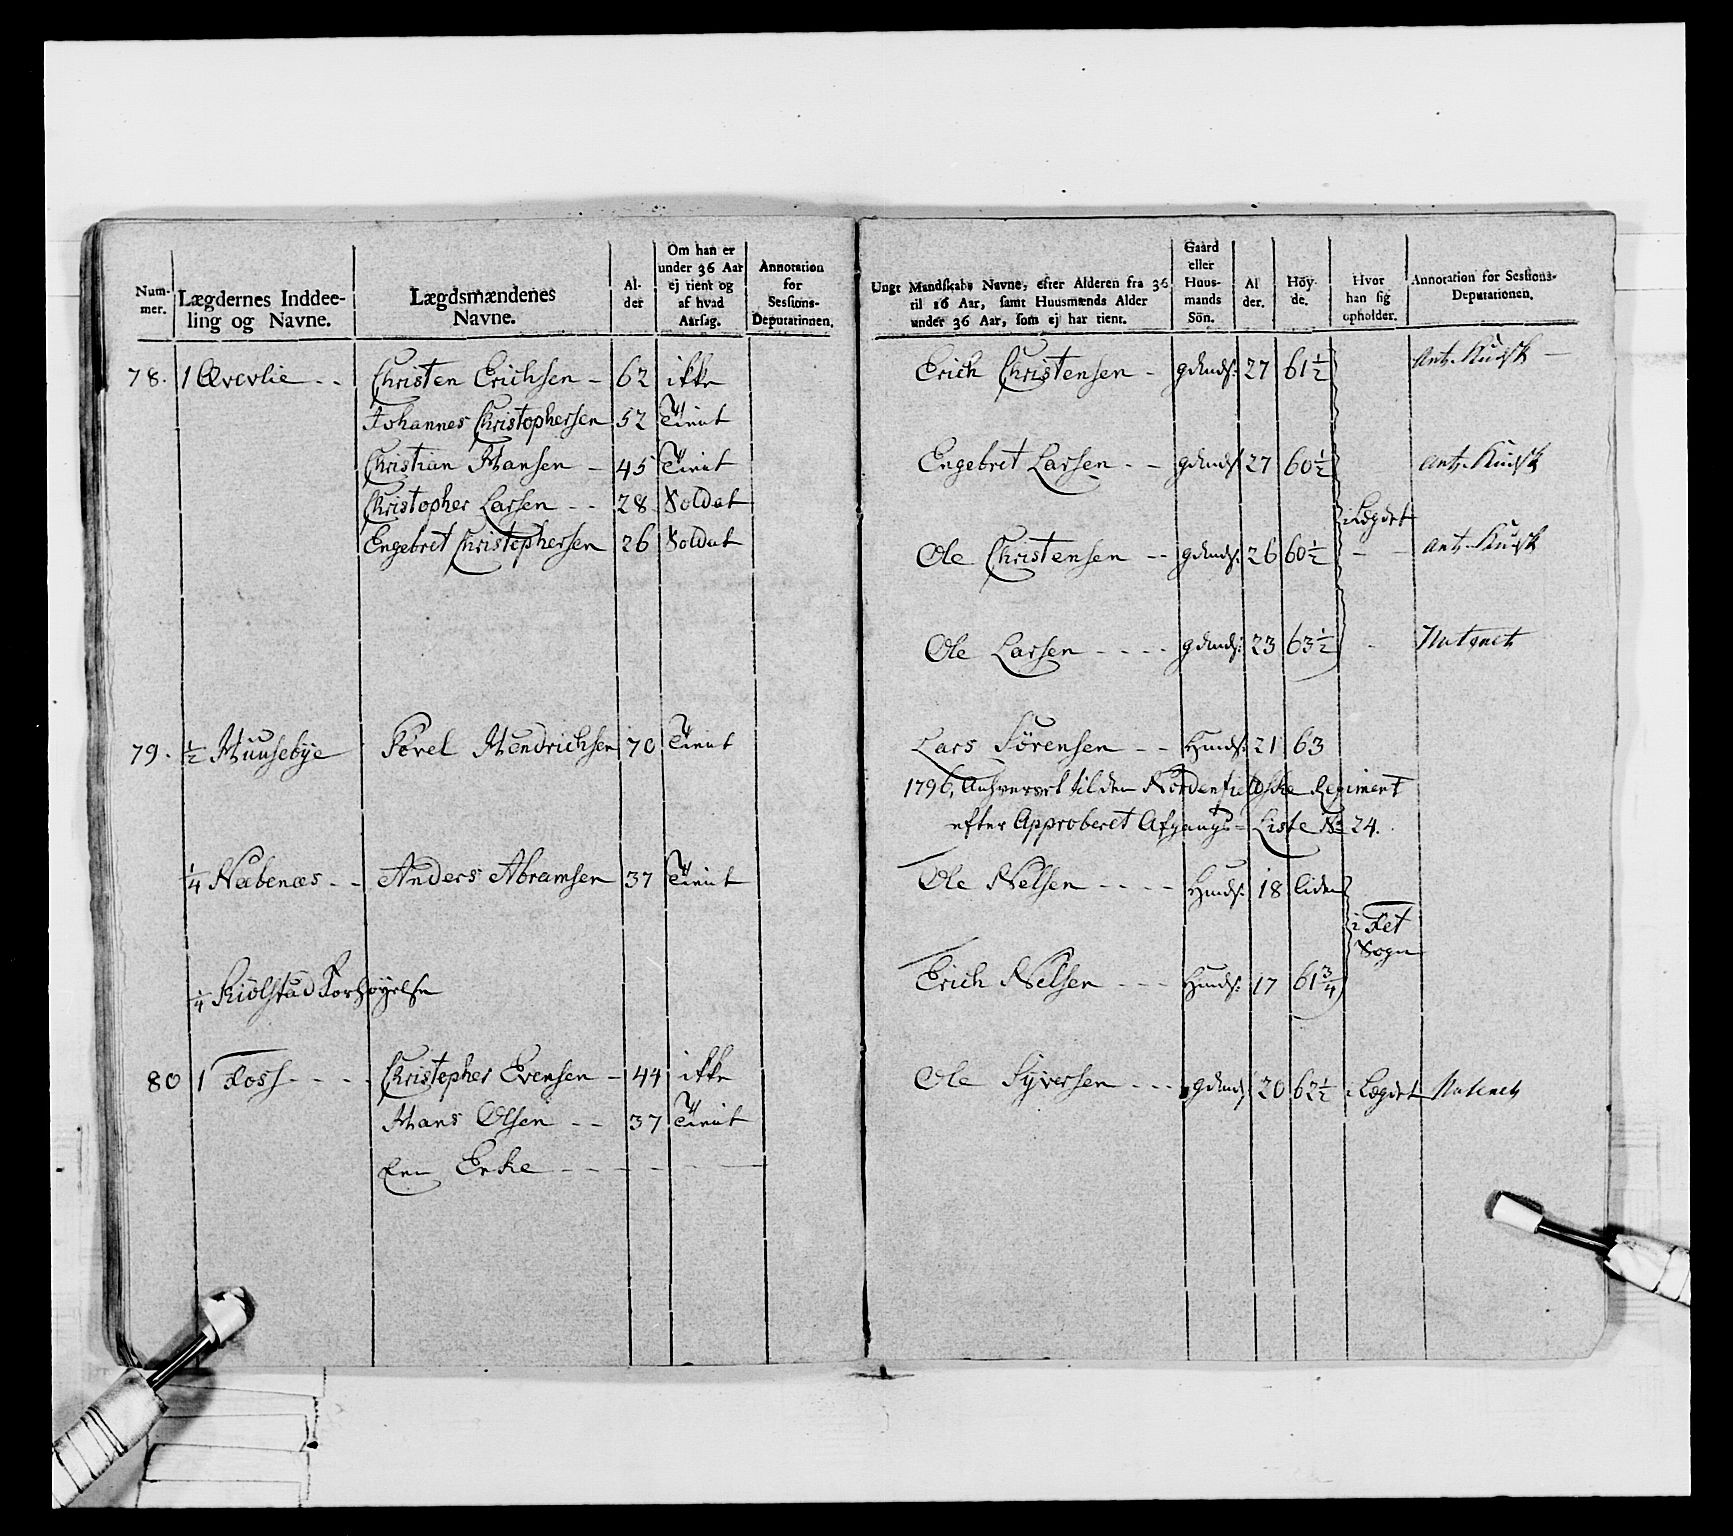 Num-
mer.
Lægdernes Inddee-
ling og Navne.
Lægdsmændenes
Navne.
Al-
der
Om han er
under 36 Aar
ej tient og
af hvad
Aarsag.
Annotation
for
Sessions-
Deputationen.
78. 1 Ævevlie - - Christen Erichsen - 62 ikke
Johannes Christophersen 52 Tient
Christian Hansen - 45 Tient
Christopher Larsen - - 28 Soldat
Engebret Christophersen 26 Soldat
79. ½ Huusebye Povel Hendrichsen 70 Tient
¼ Næbenæs - - Anders Abramsen 37 Tient
¼ Kiølstad Forhøyelse
80 1 Foss - - - - Christopher Evensen - 44 ikke
Hans Olsen - - 37 Tient
Een Enke - - - - - -
Ungt Mandskabs Navne, efter Alderen fra 36
til 16 Aar, samt Huusmænds Alder
under 36 Aar, som ej har tient.
Gaard
eller
Huus-
mands
Sön.
Al
der.
Höy-
de.
Hvor
han sig
opholder.
Annotation for Sessions-
Deputationen.
Erich Christensen - gdmds: 27 61½ Ant. Kudsk -
Engebret Larsen - - gdmds: 27 60½ Ant. Kudsk
i Lægdet
Ole Christensen - - gdmds: 26 60½ - - Ant. Kudsk
Ole Larsen - - - - gdmds: 23 63½ -
Lars Sörensen - - Hmds: 21 63
1796, Anhvervet til den Nordenfieldske Regiment
efter Approberet Afgangs-Liste No 24.
Ole Nelsen - - - - Hmds: 18 liden
i Fet
Sogn
Erich Nelsen - - - Hmds: 17 61¾
Ole Syversen - - - gdmds 20 62½ i Lægdet